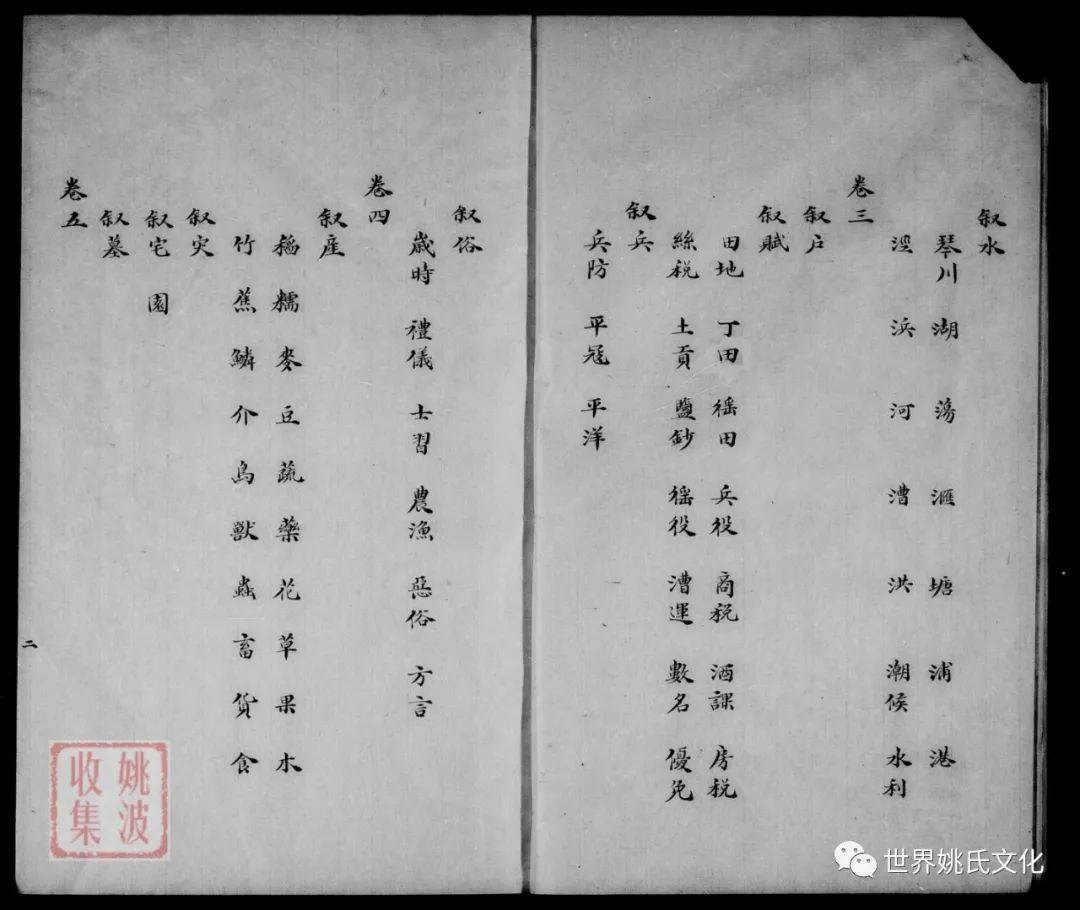 叙水
琴川 湖 蕩 滙 塘 浦 港
涇 浜 河 漕 洪 潮候 水利
卷三
叙户
叙賦
田地 丁田 徭田 兵役 商稅 酒課 房稅
絲稅 土貢 鹽鈔 徭役 漕運 數名 優免
叙兵
兵防 平冦 平洋
叙俗
歲時 禮儀 士習 農漁 惡俗 方言
卷四
叙産
稻 糯 麥 豆 蔬 藥 花 草 果 木
竹 蕉 鱗 介 鳥 獸 蟲 畜 貨 食
叙災
叙宅 園
叙墓
卷五
二
姚波
收集
世界姚氏文化